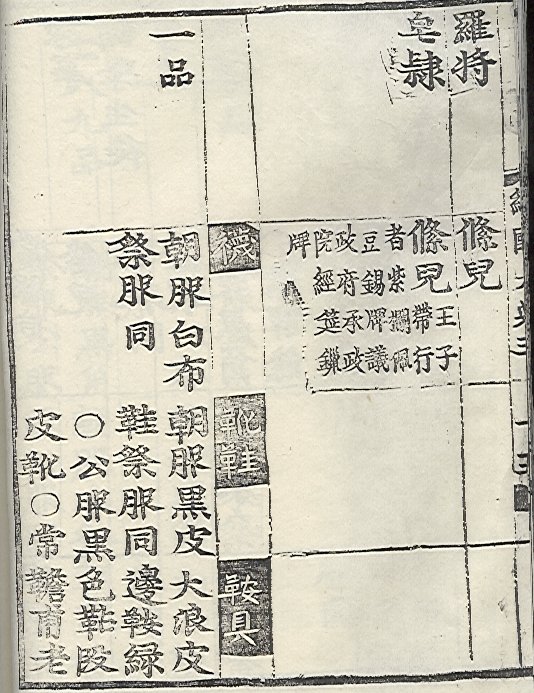 羅將
條兒
皂隷
條兒王子
帶行
者紫襴佩
豆錫牌議
政府承政
院經筵鑞
牌
襪
靴鞋
鞍具
一品
朝服白布
祭服同
朝服黑皮
鞋祭服同
○公服黑
皮靴○常
大浪皮
邊鞍緑
色鞊段
韂甫老